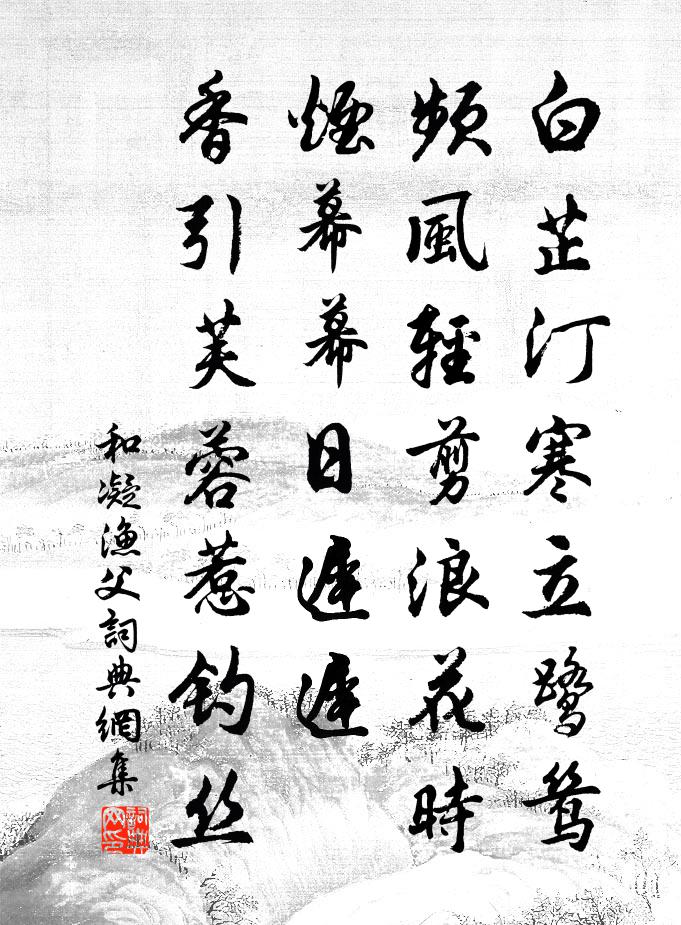 白芷汀寒立鷺鷥
頻風輕剪浪花時
煙幕幕日遲遲
香引芙蓉惹釣丝
和凝漁父詞典網集
詞典网印